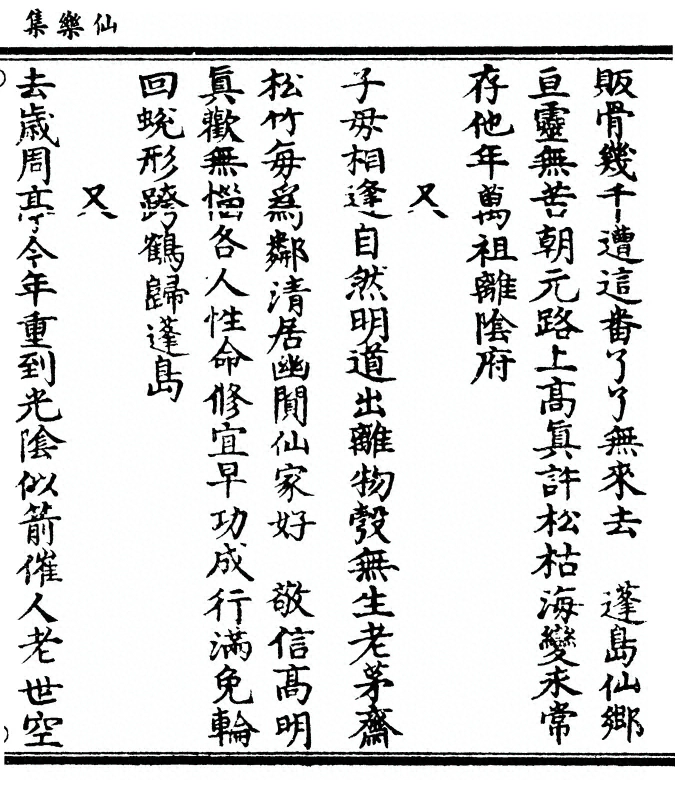 仙樂集
販骨幾千遭這番了了無來去　蓬島仙鄉
亘靈無苦朝元路上高眞許松枯海變永常
存他年萬祖離陰府
又
子母相逢自然明道出離物彀無生老茅齋
松竹每爲鄰清居幽閒仙家好　敬信高明
眞歡無惱各人性命修宜早功成行滿免輪
回蛻形跨鶴歸蓬島
又
去歲周亭今年重到光陰似箭催人老世空